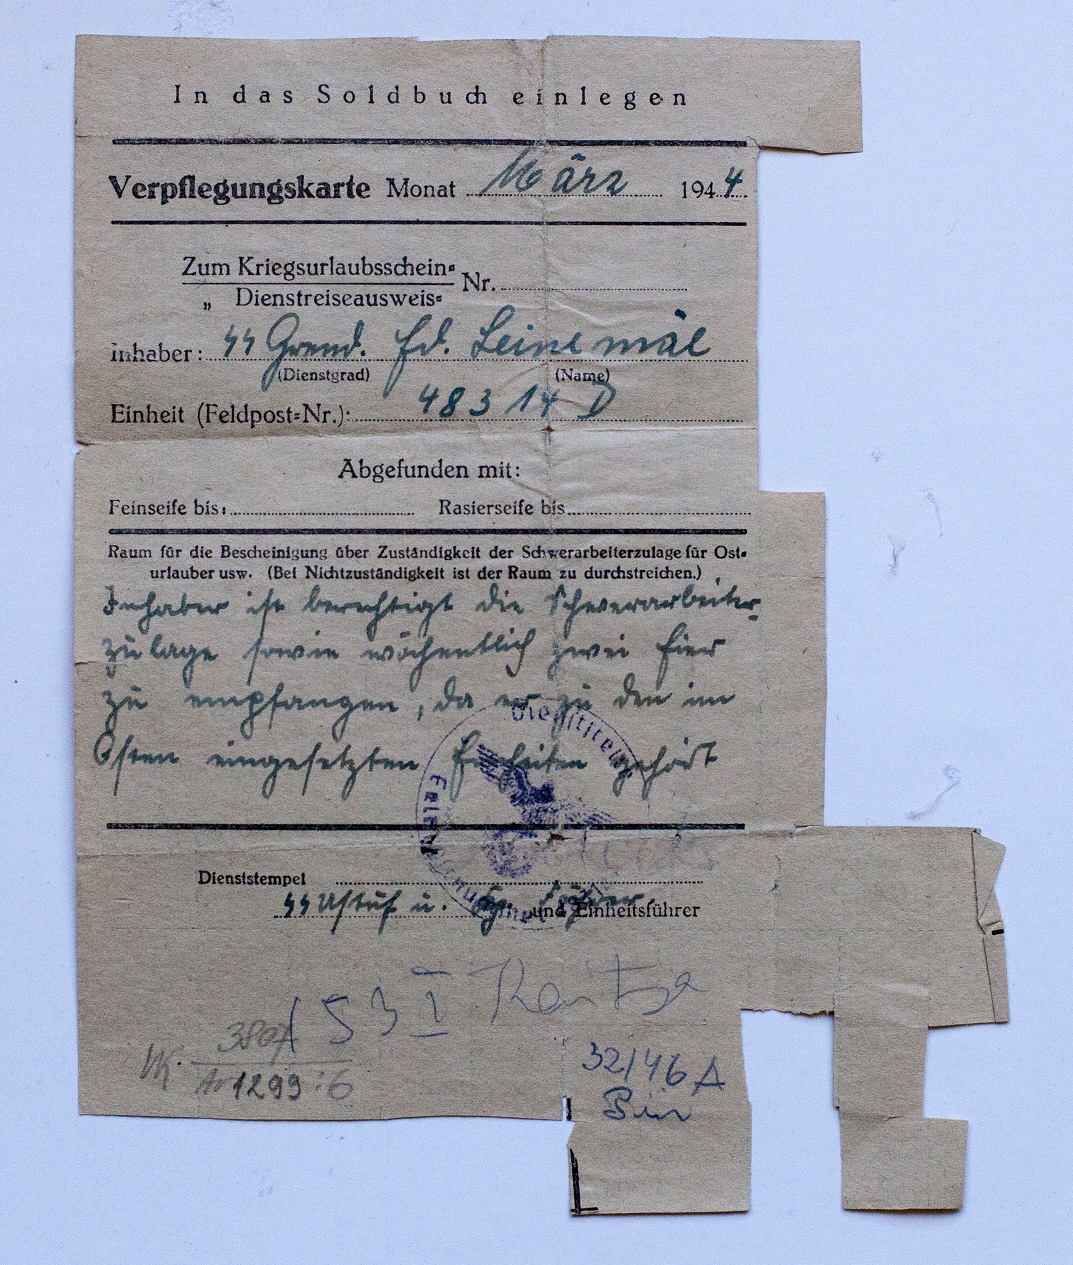 In das Soldbuch einlegen
Verpflegungskarte Monat März 1944
Zum Kriegsurlaubsschein=
„ Dienstreiseausweis=
Nr.
inhaber: Grend. Ed. Leinemäl
(Dienstgrad) (Name)
Einheit (Feldpost=Nr.): 48314 D
Abgefunden mit:
Feinseife bis: Rasierseife bis
Raum für die Bescheinigung über Zuständigkeit der Schwerarbeiterzulage für Ost=
urlauber usw. (Bei Nichtzuständigkeit ist der Raum zu durchstreichen.)
Inhaber ist berechtigt die Schwerarbeiter-
zulage sowie wöchentlich zwei Eier
zu empfangen, da er zu den im
Osten eingesetzten Einheiten gehört
Dienststelle
Dienststempel
SS Ustuf u. und Einheitsführer
153 I
3807
1299:6
32/46 A